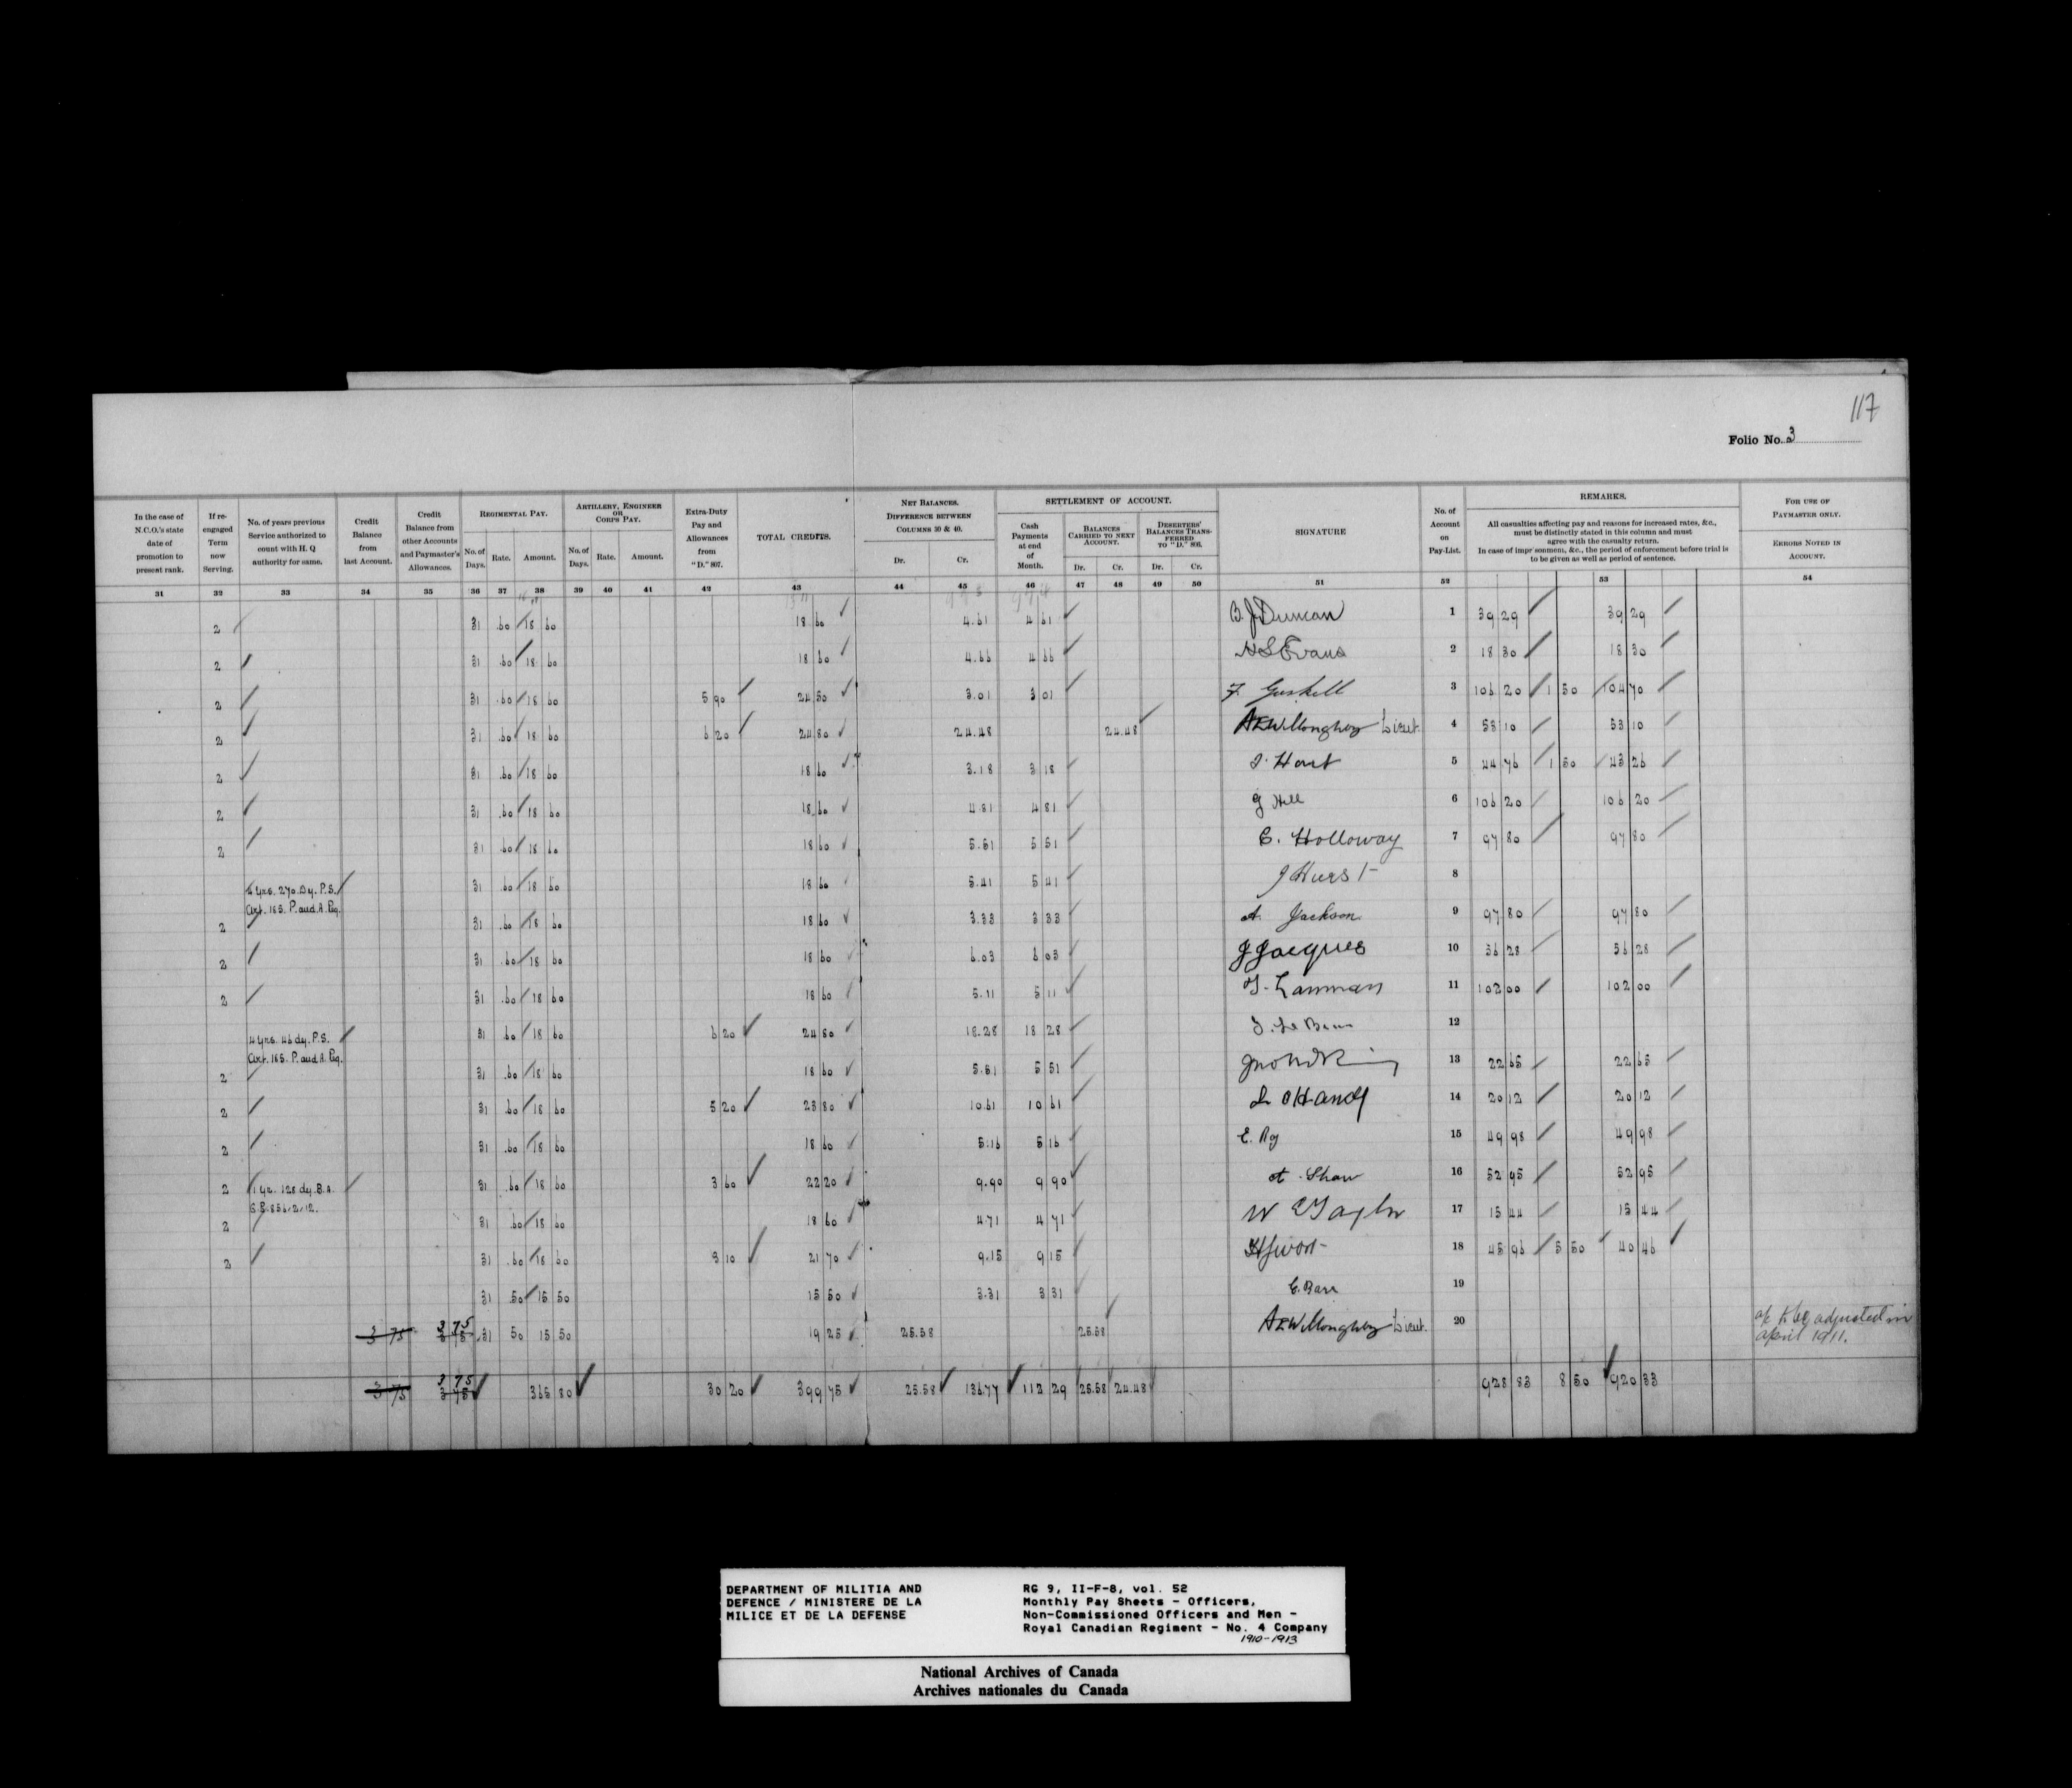 117
Folio No. 3
In the case of N.C.O.'s state date of promotion to present rank.
If re-engaged Term now Serving.
No. of years previous Service authorized to count with H. Q authority for same.
Credit Balance from last Account.
Credit Balance from other Accounts and Paymaster's Allowances.
REGIMENTAL PAY.
No. of Days. Rate. Amount.
ARTILLERY, ENGINEER OR CORPS PAY.
No. of Days. Rate. Amount.
Extra-Duty Pay and Allowances from "D." 807.
TOTAL CREDITS.
NET BALANCES.
DIFFERENCE BETWEEN COLUMNS 30 & 40.
Dr. Cr.
SETTLEMENT OF ACCOUNT.
Cash Payments at end of Month.
BALANCES CARRIED TO NEXT ACCOUNT.
Dr. Cr.
DESERTERS' BALANCES TRANSFERRED TO "D." 806.
Dr. Cr.
SIGNATURE
No. of Account on Pay-List.
REMARKS.
All casualties affecting pay and reasons for increased rates, &c.,
must be distinctly stated in this column and must
agree with the casualty return.
In case of imprisonment, &c., the period of enforcement before trial is
to be given as well as period of sentence.
FOR USE OF PAYMASTER ONLY.
ERRORS NOTED IN ACCOUNT.
31 32 33 34 35 36 37 38 39 40 41 42 43 44 45 46 47 48 49 50 51 52 53 54
2 31 .60 18 60 18 60 4.61 4 61 B. J. Duncan 1 39 29 39 29
2 31 .60 18 60 18 60 4.66 4 66 Evans 2 18 30 18 30
2 31 .60 18 60 5 90 24 50 3.01 3 01 F. Gaskell 3 106 20 1 50 104 70
2 31 .60 18 60 6 20 24 80 24.48 24.48 A E Willoughby Lieut. 4 53 10 53 10
2 31 .60 18 60 18 60 3.18 3 18 Hart 5 44 76 1 50 43 26
2 31 .60 18 60 18 60 4.81 4 81 G Hill 6 106 20 106 20
2 31 .60 18 60 18 60 5.51 5 51 C. Holloway 7 97 80 97 80
4 Yrs. 270 Dy. P.S.
Art. 185. P. and A. Reg.
31 .60 18 60 18 60 5.41 5 41 J Hurst 8
2 31 .60 18 60 18 60 3.33 3 33 A. Jackson 9 97 80 97 80
2 31 .60 18 60 18 60 6.03 6 03 J Jacques 10 36 28 36 28
2 31 .60 18 60 18 60 5.11 5 11 Lanman 11 102 00 102 00
4 Yrs. 46 dy. P.S.
Art. 185. P. and A. Reg.
31 .60 18 60 6 20 24 80 18.28 18 28 12
2 31 .60 18 60 18 60 5.51 5 51 13 22 65 22 65
2 31 .60 18 60 5 20 23 80 10.61 10 61 O Handy 14 20 12 20 12
2 31 .60 18 60 18 60 5.16 5 16 E. Roy 15 49 98 49 98
2 1 Yr. 128 dy. B.A.
31 .60 18 60 3 60 22 20 9.90 9 90 A. Shaw 16 52 95 52 95
2 31 .60 18 60 18 60 4.71 4 71 W E Taylor 17 15 44 15 44
2 31 .60 18 60 3 10 21 70 9.15 9 15 18 45 96 5 50 40 46
31 .50 15 50 15 50 3.31 3 31 C. Barr 19
3 75 3 75 3 75 31 50 15 50 19 25 25.58 25.58 A E Willoughby Lieut. 20
a/c to be adjusted in
April 1911.
3 75 3 75 3 75 365 80 30 20 399 75 25.58 136.77 112 29 25.58 24.48 928 83 8 50 920 33
DEPARTMENT OF MILITIA AND
DEFENCE / MINISTERE DE LA
MILICE ET DE LA DEFENSE
RG 9, II-F-8, vol. 52
Monthly Pay Sheets - Officers,
Non-Commissioned Officers and Men -
Royal Canadian Regiment - No. 4 Company
1910-1913
National Archives of Canada
Archives nationales du Canada